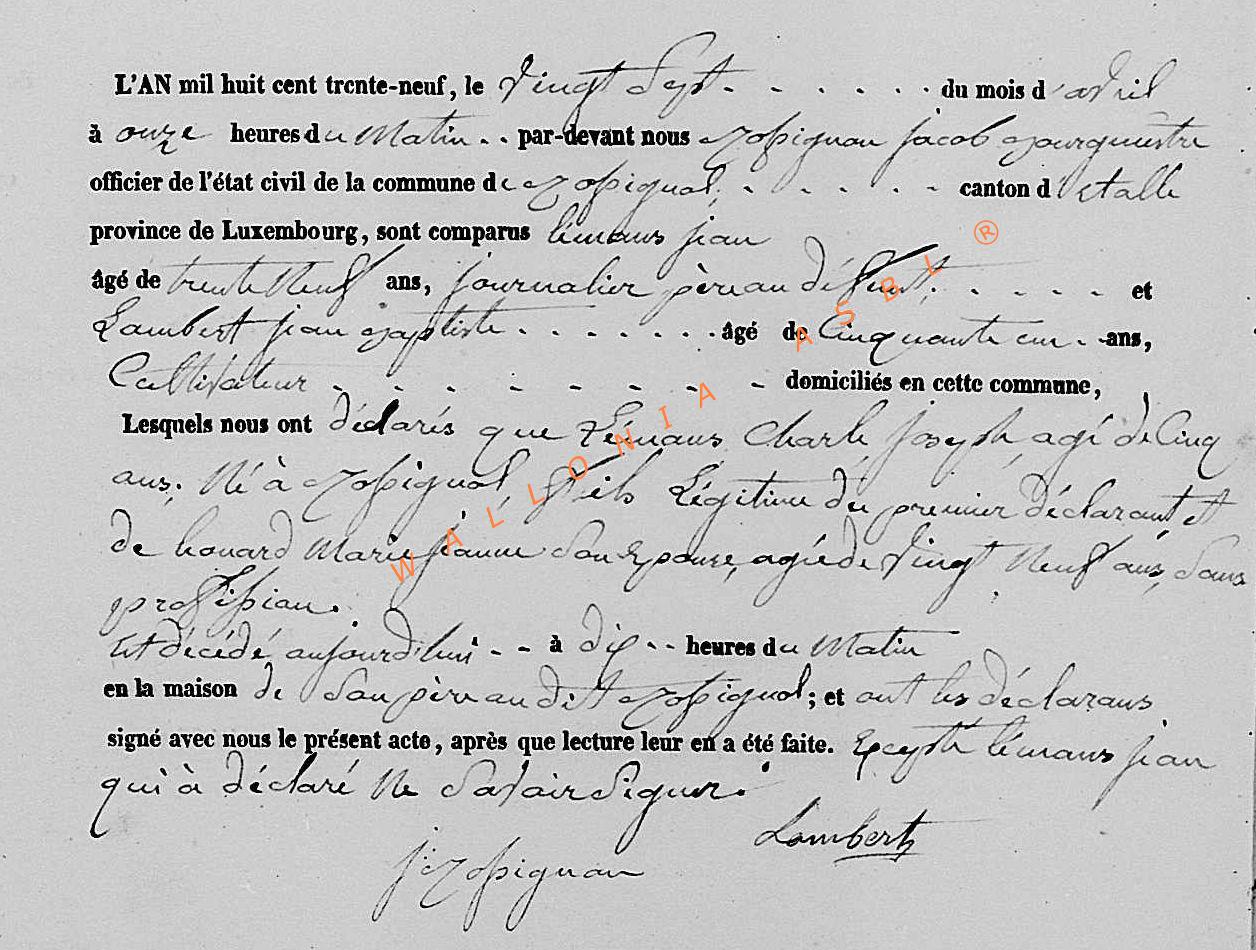 L'AN mil huit cent trente-neuf, le vingt Sept - - - - - - du mois d'avril
à onze heures du Matin - - par-devant nous Rossignon jacob Bourgmestre
officier de l'état civil de la commune de Rossignol, - - - - - canton d'Etalle
province de Luxembourg, sont comparus lémans jean
âgé de trente Neuf ans, journalier père au défunt, - - - - - et
Lambert jean Baptiste - - - - - - - âgé de Cinquante un - - ans,
Cultivateur - - - - - - - - domiciliés en cette commune,
Lesquels nous ont déclarés que Lémans Charle joseph agé de Cinq
ans, Né à Rossignol, fils Légitime du premier déclarant et
de houard Marie jeanne Son Epouse, agée de vingt Neuf ans, Sans
profission.
Est décédé aujourd'hui - - à dix - - heures du Matin
en la maison de Son père au dit Rossignol; et ont les déclarans
signé avec nous le présent acte, après que lecture leur en a été faite. Excepté lémans jean
qui à déclaré Ne Savoir Signer.
Lambert
j. Rossignon
WALLONIA ASBL ®